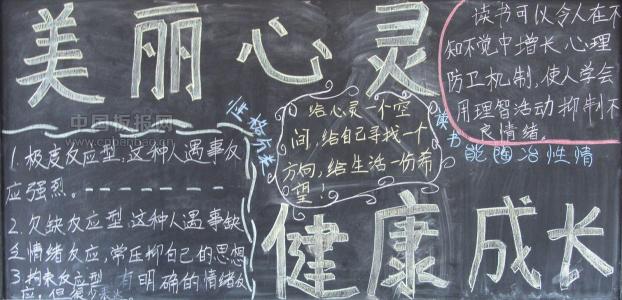 美丽心灵
读书可以令人在不
知不觉中增长心理
防卫机制,使人学会
用理智活动抑制不
良情绪.
读书
能陶冶性情
中国板报网
www.cnbanbao.cn
性格分类
给心灵一个空
间,给自己寻找一个
方向,给生活一份希
望!
1.极度反应型,这种人遇事反
应强烈.
2.欠缺反应型.这种人遇事缺
乏情绪反应,常压抑自己的思想
3.拘束反应型 有明确的情绪反
应,但很少表
健康成长